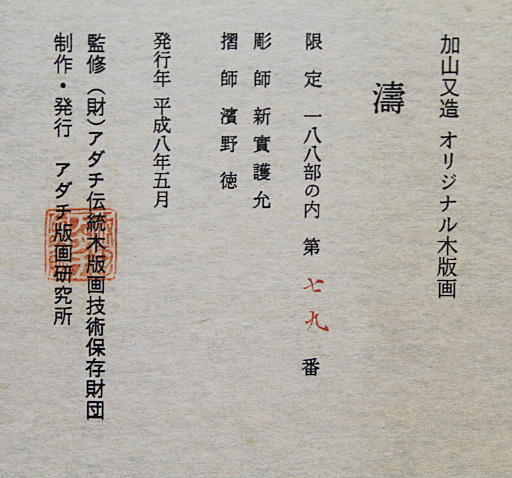 加山又造 オリジナル木版画
濤
限定 一八八部の内 第 七九 番
彫師 新實護允
摺師 濱野徳
発行年 平成八年五月
監修(財)アダチ伝統木版画技術保存財団
制作・発行 アダチ版画研究所